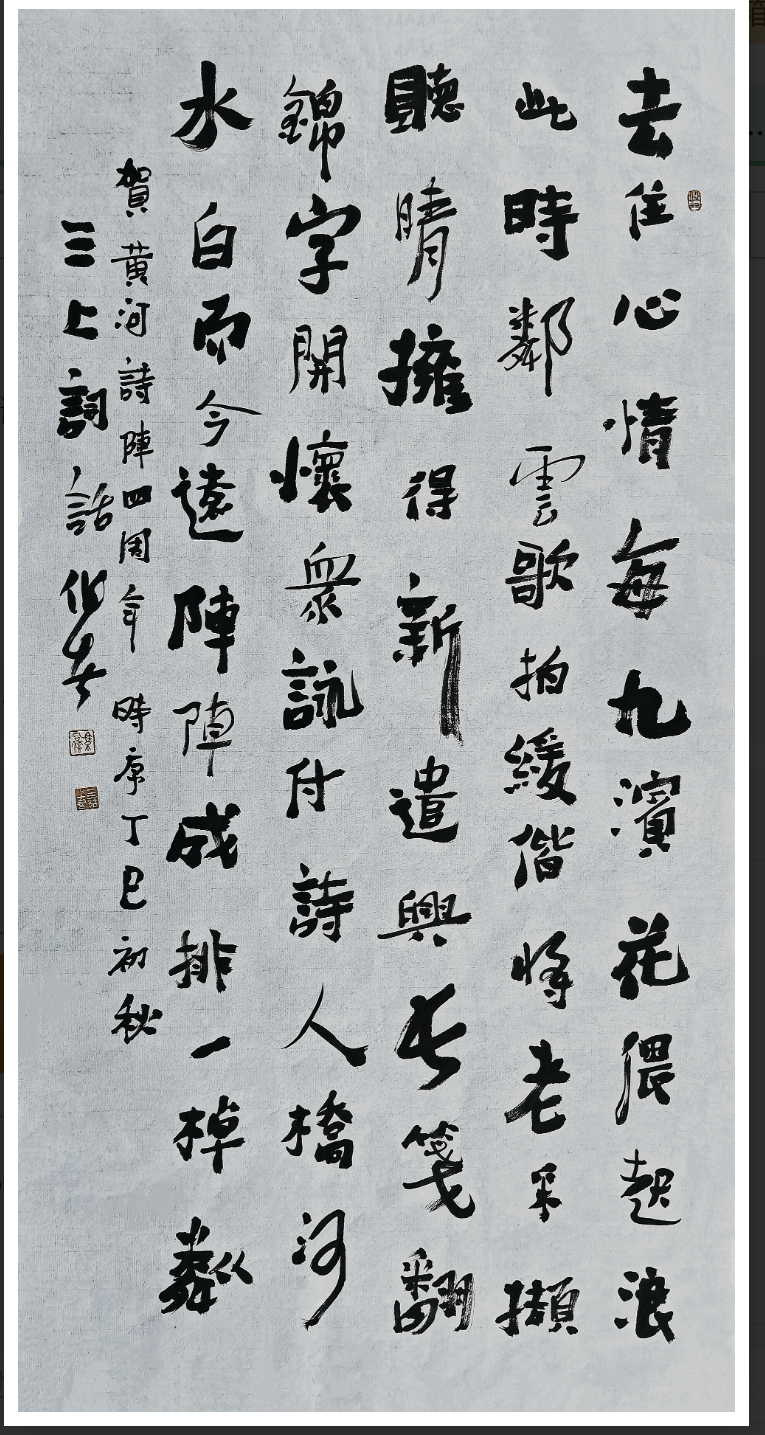 去住心情每九濱花偎起浪
此時鄰雲歌拍緩偕將老采擷
聽晴擁得新遣興長箋翻
錦字開懷衆詠付詩人橋河
水白而今遠陣陣成排一棹粼
賀黃河詩陣四周年 時序丁巳初秋
三上詞話